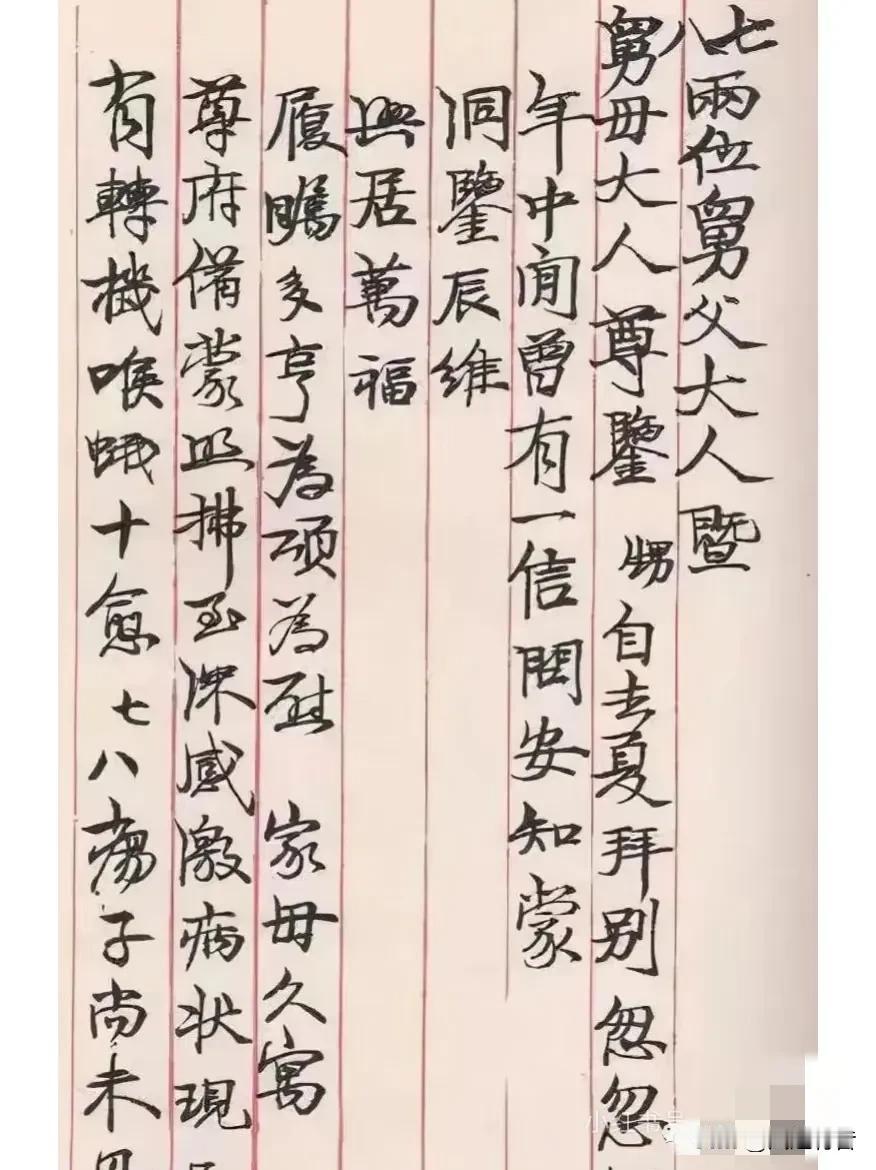 七八兩位舅父大人暨
舅母大人尊鑒 甥自去夏拜别忽忽
年中间曾有一信問安知蒙
洞鑒辰維
興居萬福
履驣多亨為頌為慰 家母久寓
尊府備蒙照拂至深感激病状現
有轉機喉蛾十愈七八瘍子尚未
小红书号